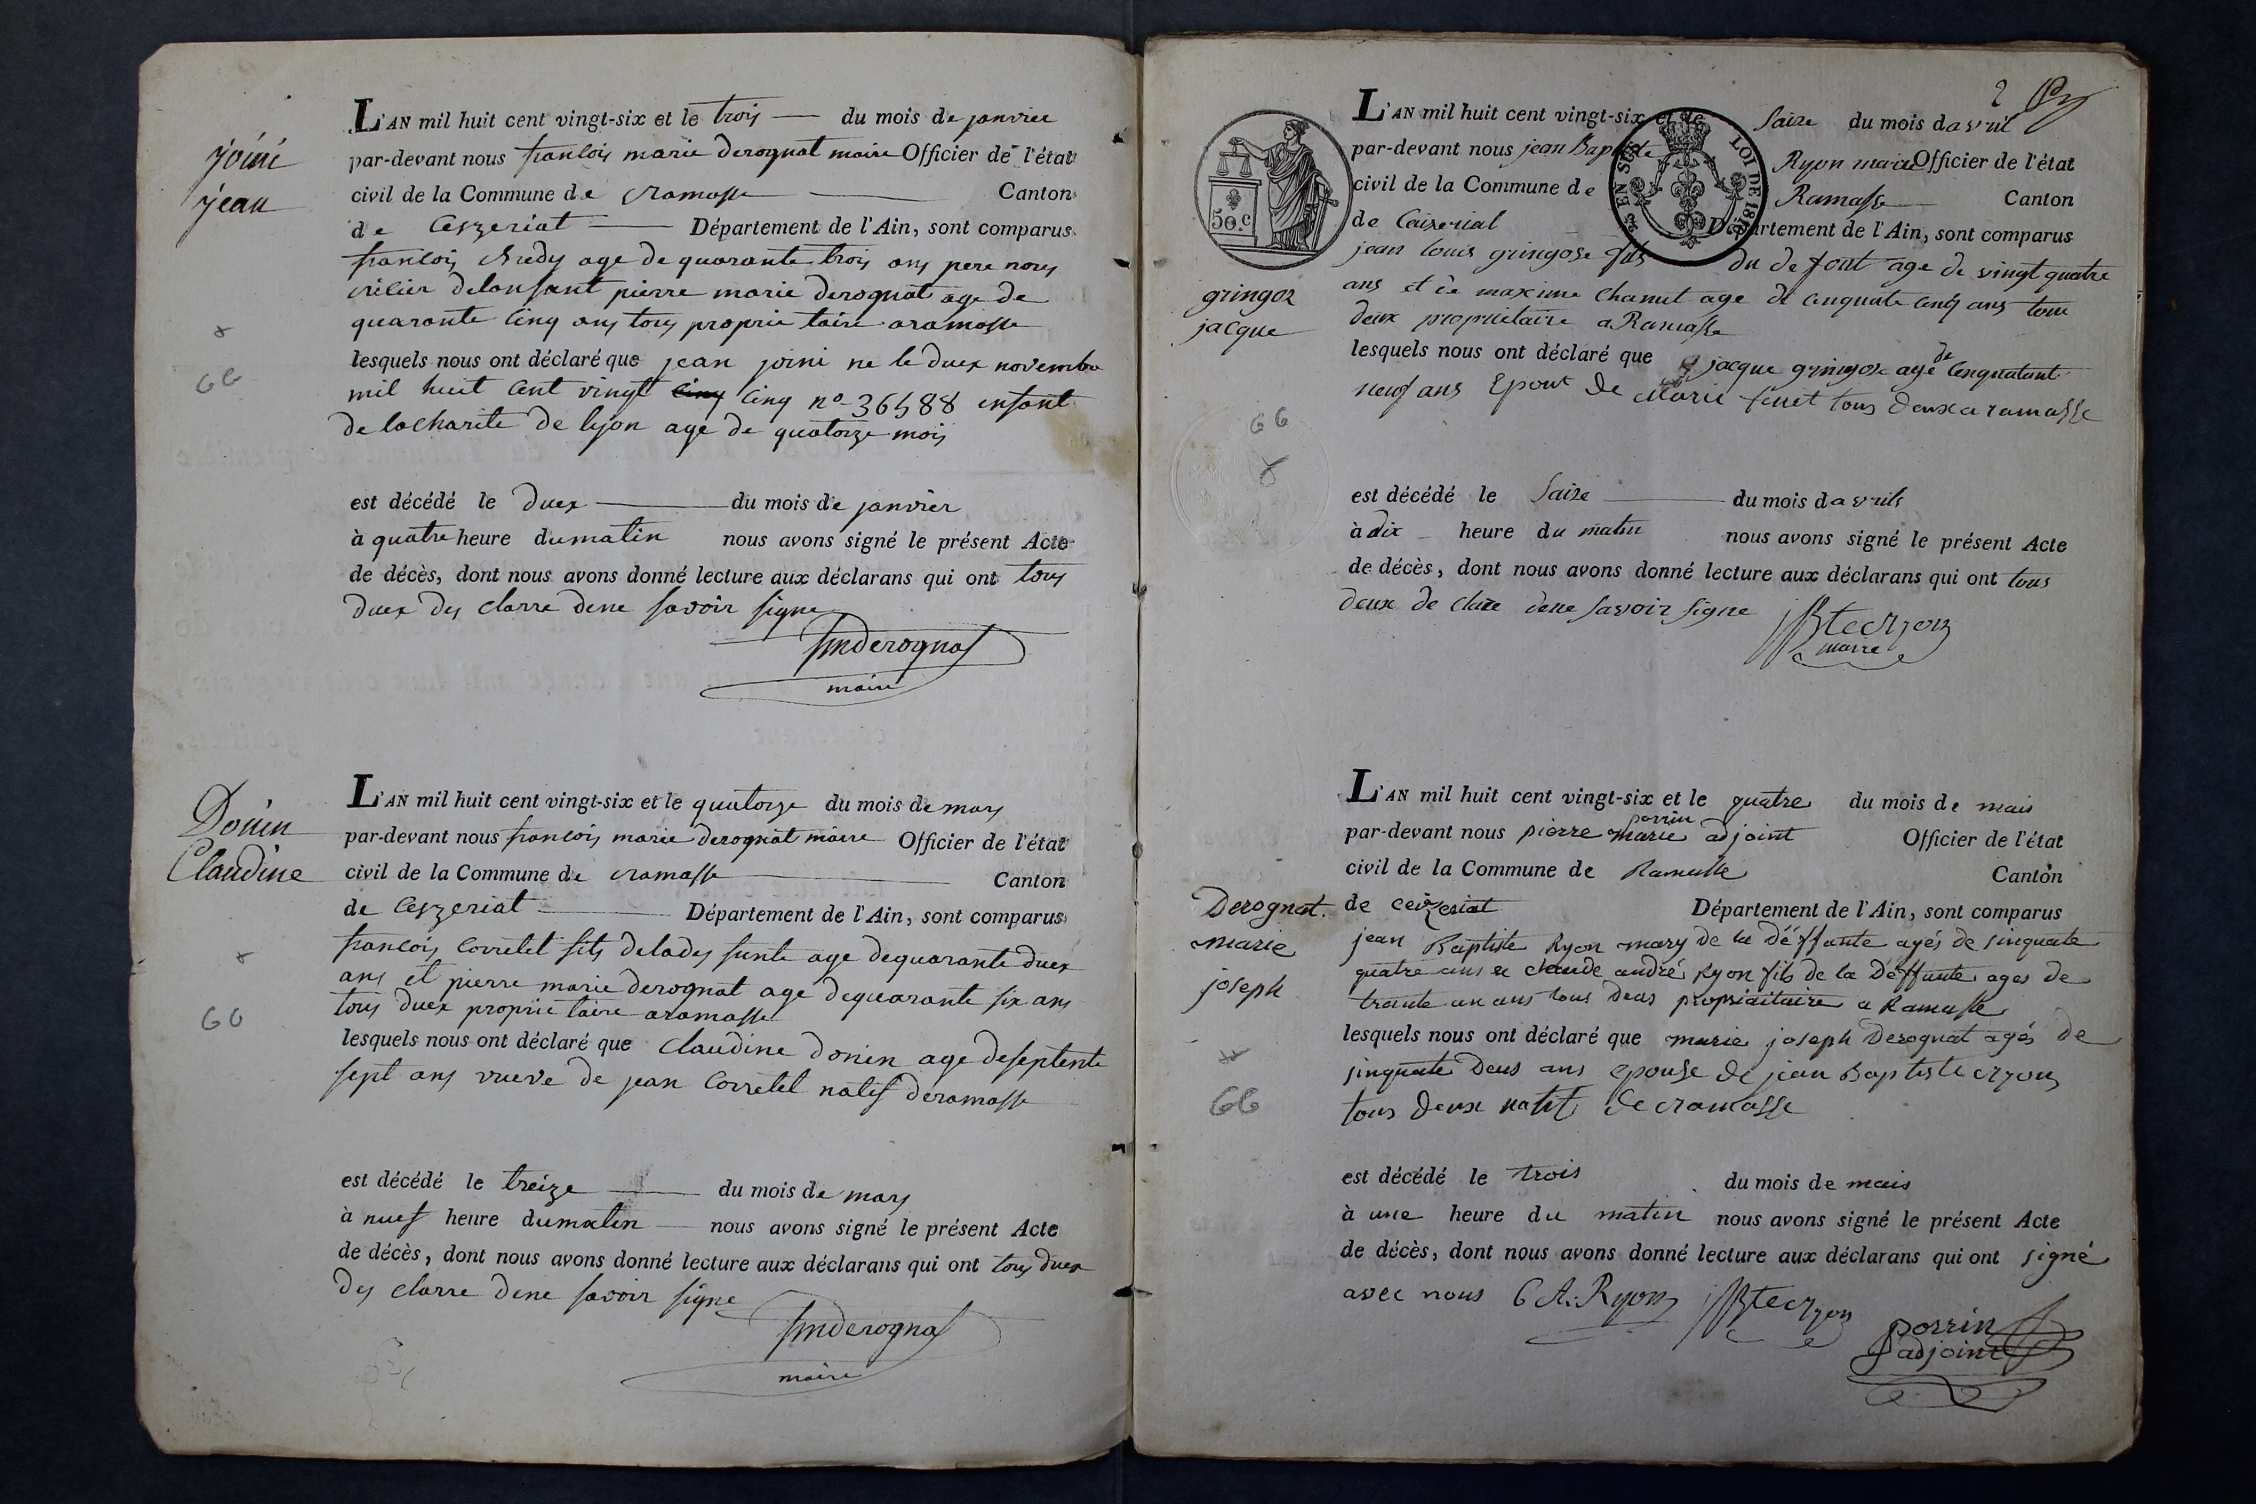 joini
jean
L'AN mil huit cent vingt-six et le trois du mois de janvier
par-devant nous francois marie derognat maire Officier de l'état
civil de la Commune de ramasse Canton
de Ceyzeriat Département de l'Ain, sont comparus
francois age de quarante trois ans pere nour
ricier delansant pierre marie derognat age de
quarante cinq ans tous proprie taire aramasse
lesquels nous ont déclaré que jean joini ne le duex novembre
mil huit cent vingt cinq cinq no 36588 enfant
de lacharite de lyon age de quatorze mois
est décédé le duex du mois de janvier
à quatre heure dumatin nous avons signé le présent Acte
de décès, dont nous avons donné lecture aux déclarans qui ont tous
duex des clarre dene savoir signe
fmderognat
maire
Donin
Claudine
L'AN mil huit cent vingt-six et le quatorze du mois de mars
par-devant nous francois marie derognat maire Officier de l'état
civil de la Commune de ramasse Canton
de Ceyzeriat Département de l'Ain, sont comparus
francois Corretel fils delades funte age dequarante duex
ans et pierre marie derognat age dequarante six ans
tous duex proprie taire aramasse
lesquels nous ont déclaré que Claudine donin age deseptente
sept ans vueve de jean Corretel natif deramasse
est décédé le treize du mois de mars
à nuef heure dumatin nous avons signé le présent Acte
de décès, dont nous avons donné lecture aux déclarans qui ont tous duex
des clarre dene savoir signe
fmderognat
maire
2
50.c
EN SUS
LOI DE 1816
gringoz
jacque
L'AN mil huit cent vingt-six et le saize du mois davril
par-devant nous jean Baptiste Ryon maire Officier de l'état
civil de la Commune de Ramasse Canton
de Caizerial Département de l'Ain, sont comparus
jean louis gringoze fils du defont age de vingt quatre
ans et de maxime Chanut age de cenquate cenq ans tous
deux propriletaire a Ramasse
lesquels nous ont déclaré que jacque gringoze age de Cenquatant
neuf ans Epout de Marie tous deux a ramasse
est décédé le saize du mois davrils
à dix heure du matin nous avons signé le présent Acte
de décès, dont nous avons donné lecture aux déclarans qui ont tous
deux de claire dene savoir signe
JBte Ryon
maire
Derognat
marie
joseph
L'AN mil huit cent vingt-six et le quatre du mois de mais
par-devant nous pierre marie perrin adjoint Officier de l'état
civil de la Commune de Ramasse Canton
de ceizeriat Département de l'Ain, sont comparus
jean Baptiste Ryon mary de la déffunte agés de sinquate
quatre ans et claude andré Ryon fils de la déffunte ages de
trante un ans tous deus propriaitaire a Ramasse
lesquels nous ont déclaré que marie joseph Derognat agés de
sinquate deus ans epouse de jean Baptiste Ryon
tous deux natif de ramasse
est décédé le trois du mois de mais
à une heure du matin nous avons signé le présent Acte
de décès, dont nous avons donné lecture aux déclarans qui ont signé
avec nous C A. Ryon JBte Ryon
perrin
adjoint